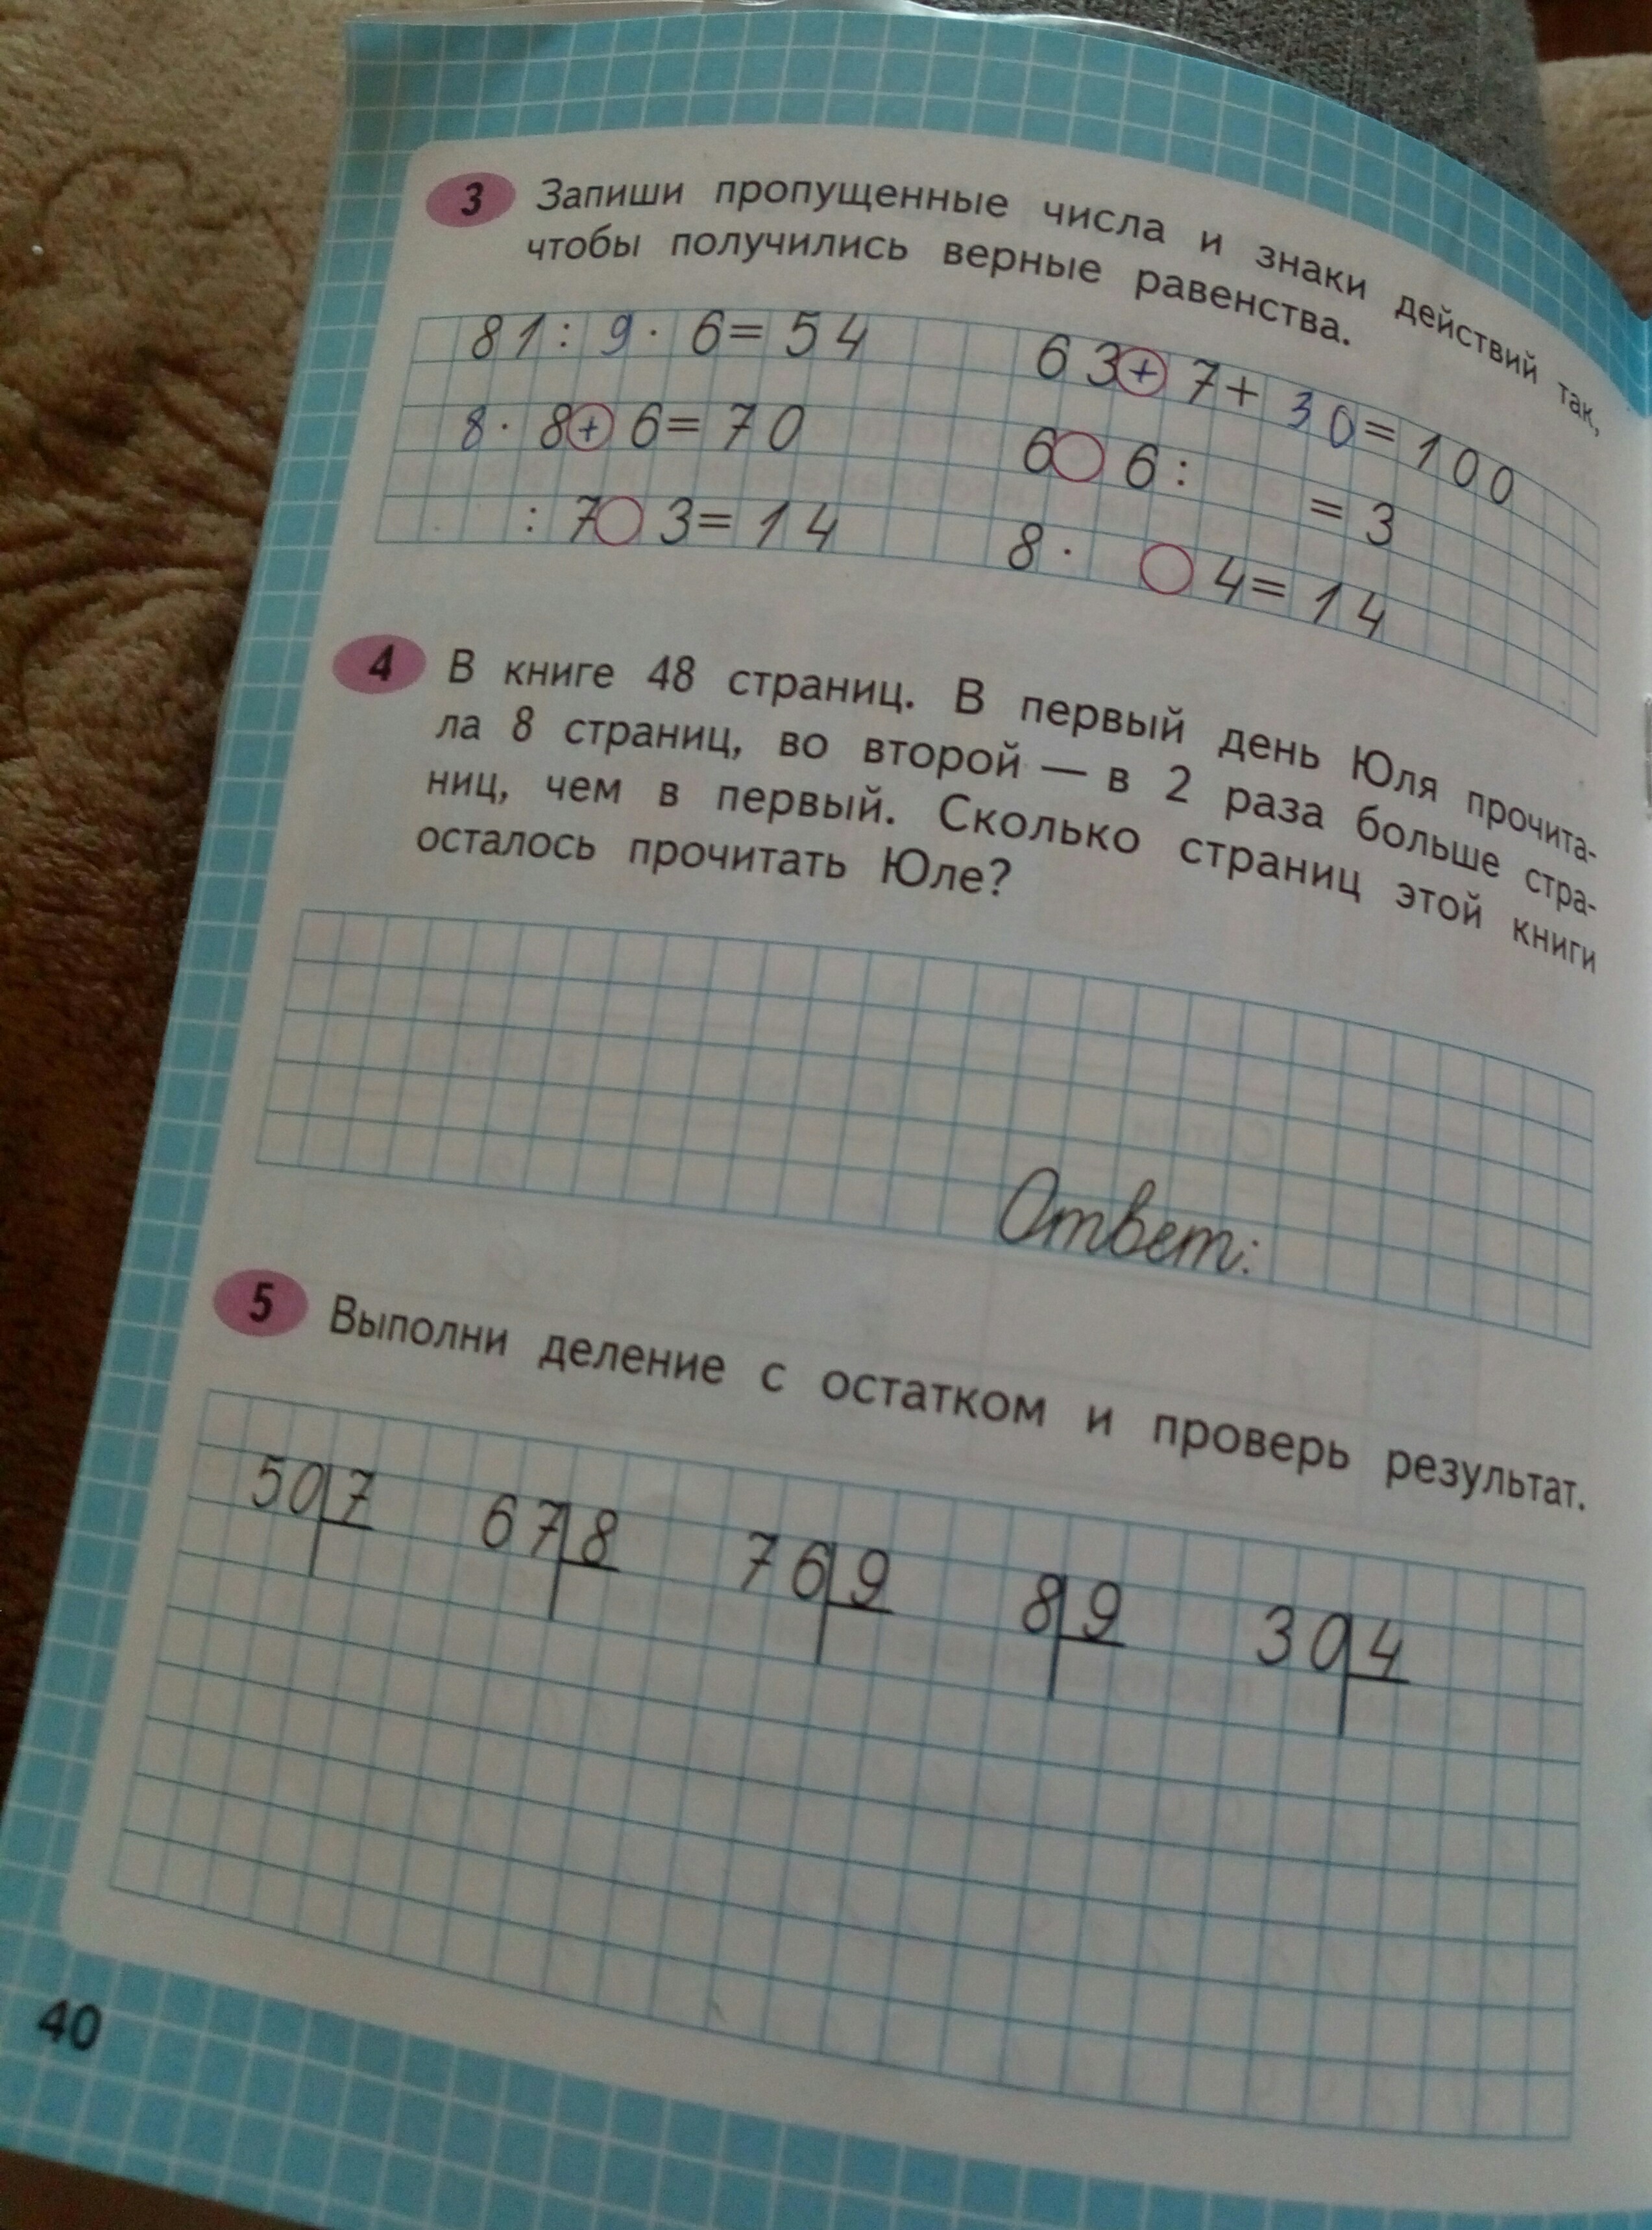 3 Запиши пропущенные числа и знаки действий так,
чтобы получились верные равенства.
81 : 9 · 6 = 54
63 + 7 + 30 = 100
8 · 8 + 6 = 70
6 ○ 6 : = 3
: 7 ○ 3 = 14
8 · ○ 4 = 14
4 В книге 48 страниц. В первый день Юля прочита-
ла 8 страниц, во второй — в 2 раза больше стра-
ниц, чем в первый. Сколько страниц этой книги
осталось прочитать Юле?
Ответ:
5 Выполни деление с остатком и проверь результат.
50 7 67 8 76 9 8 9 30 4
40